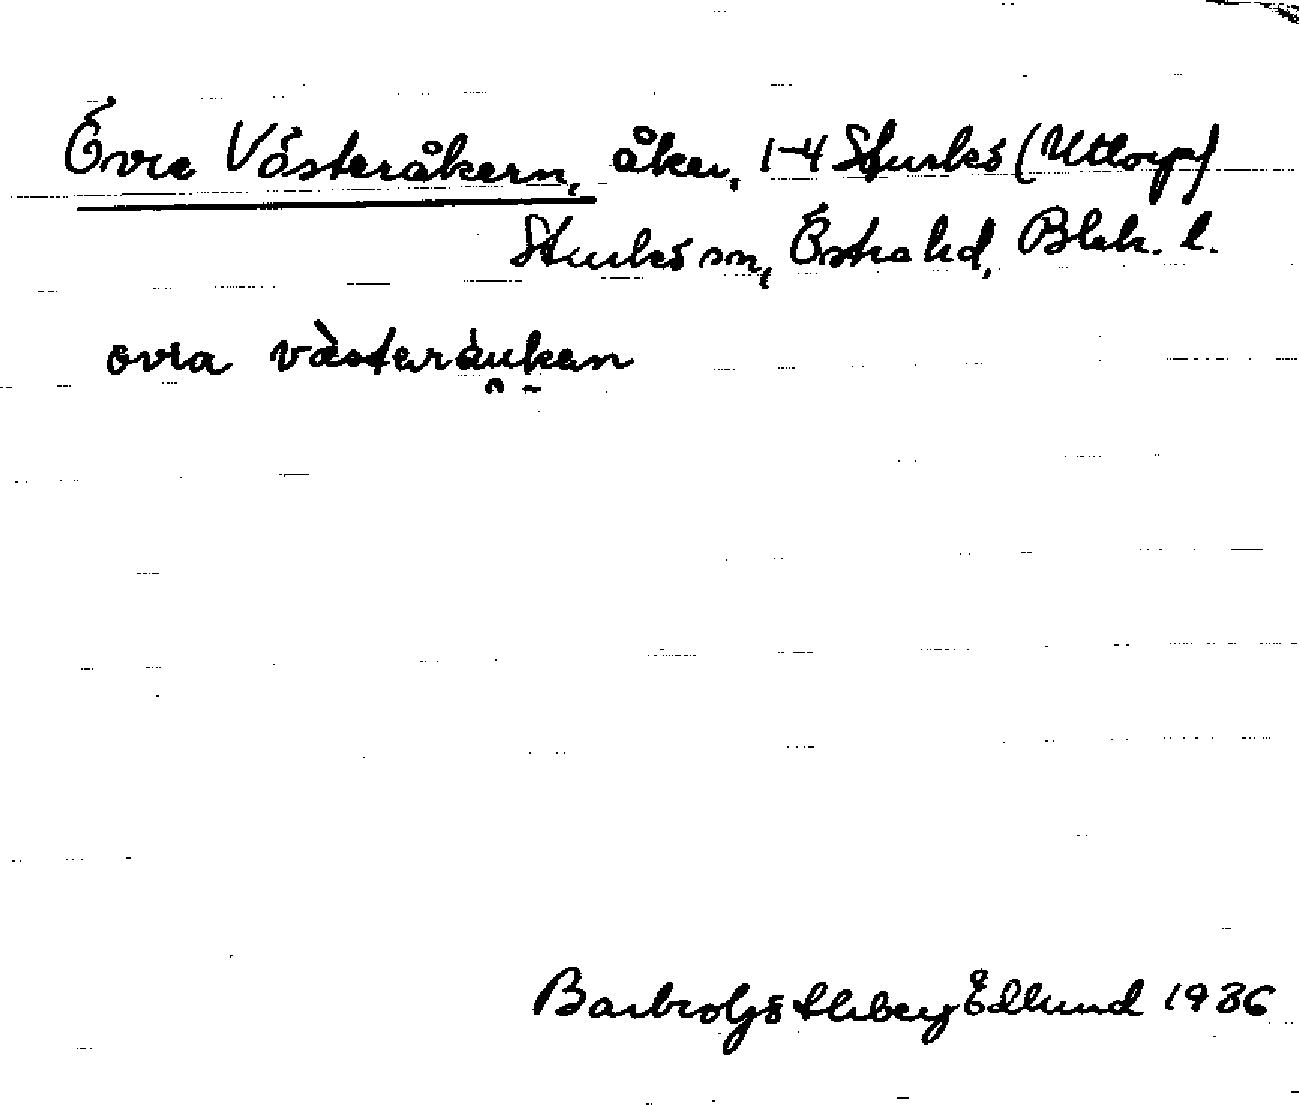 Övre Västeråkern, åker, 1-4 Sturkö (Uttorp)
Sturkö sn, Östra hd, Blek. l.
övra västeråuken
Edlund 1986